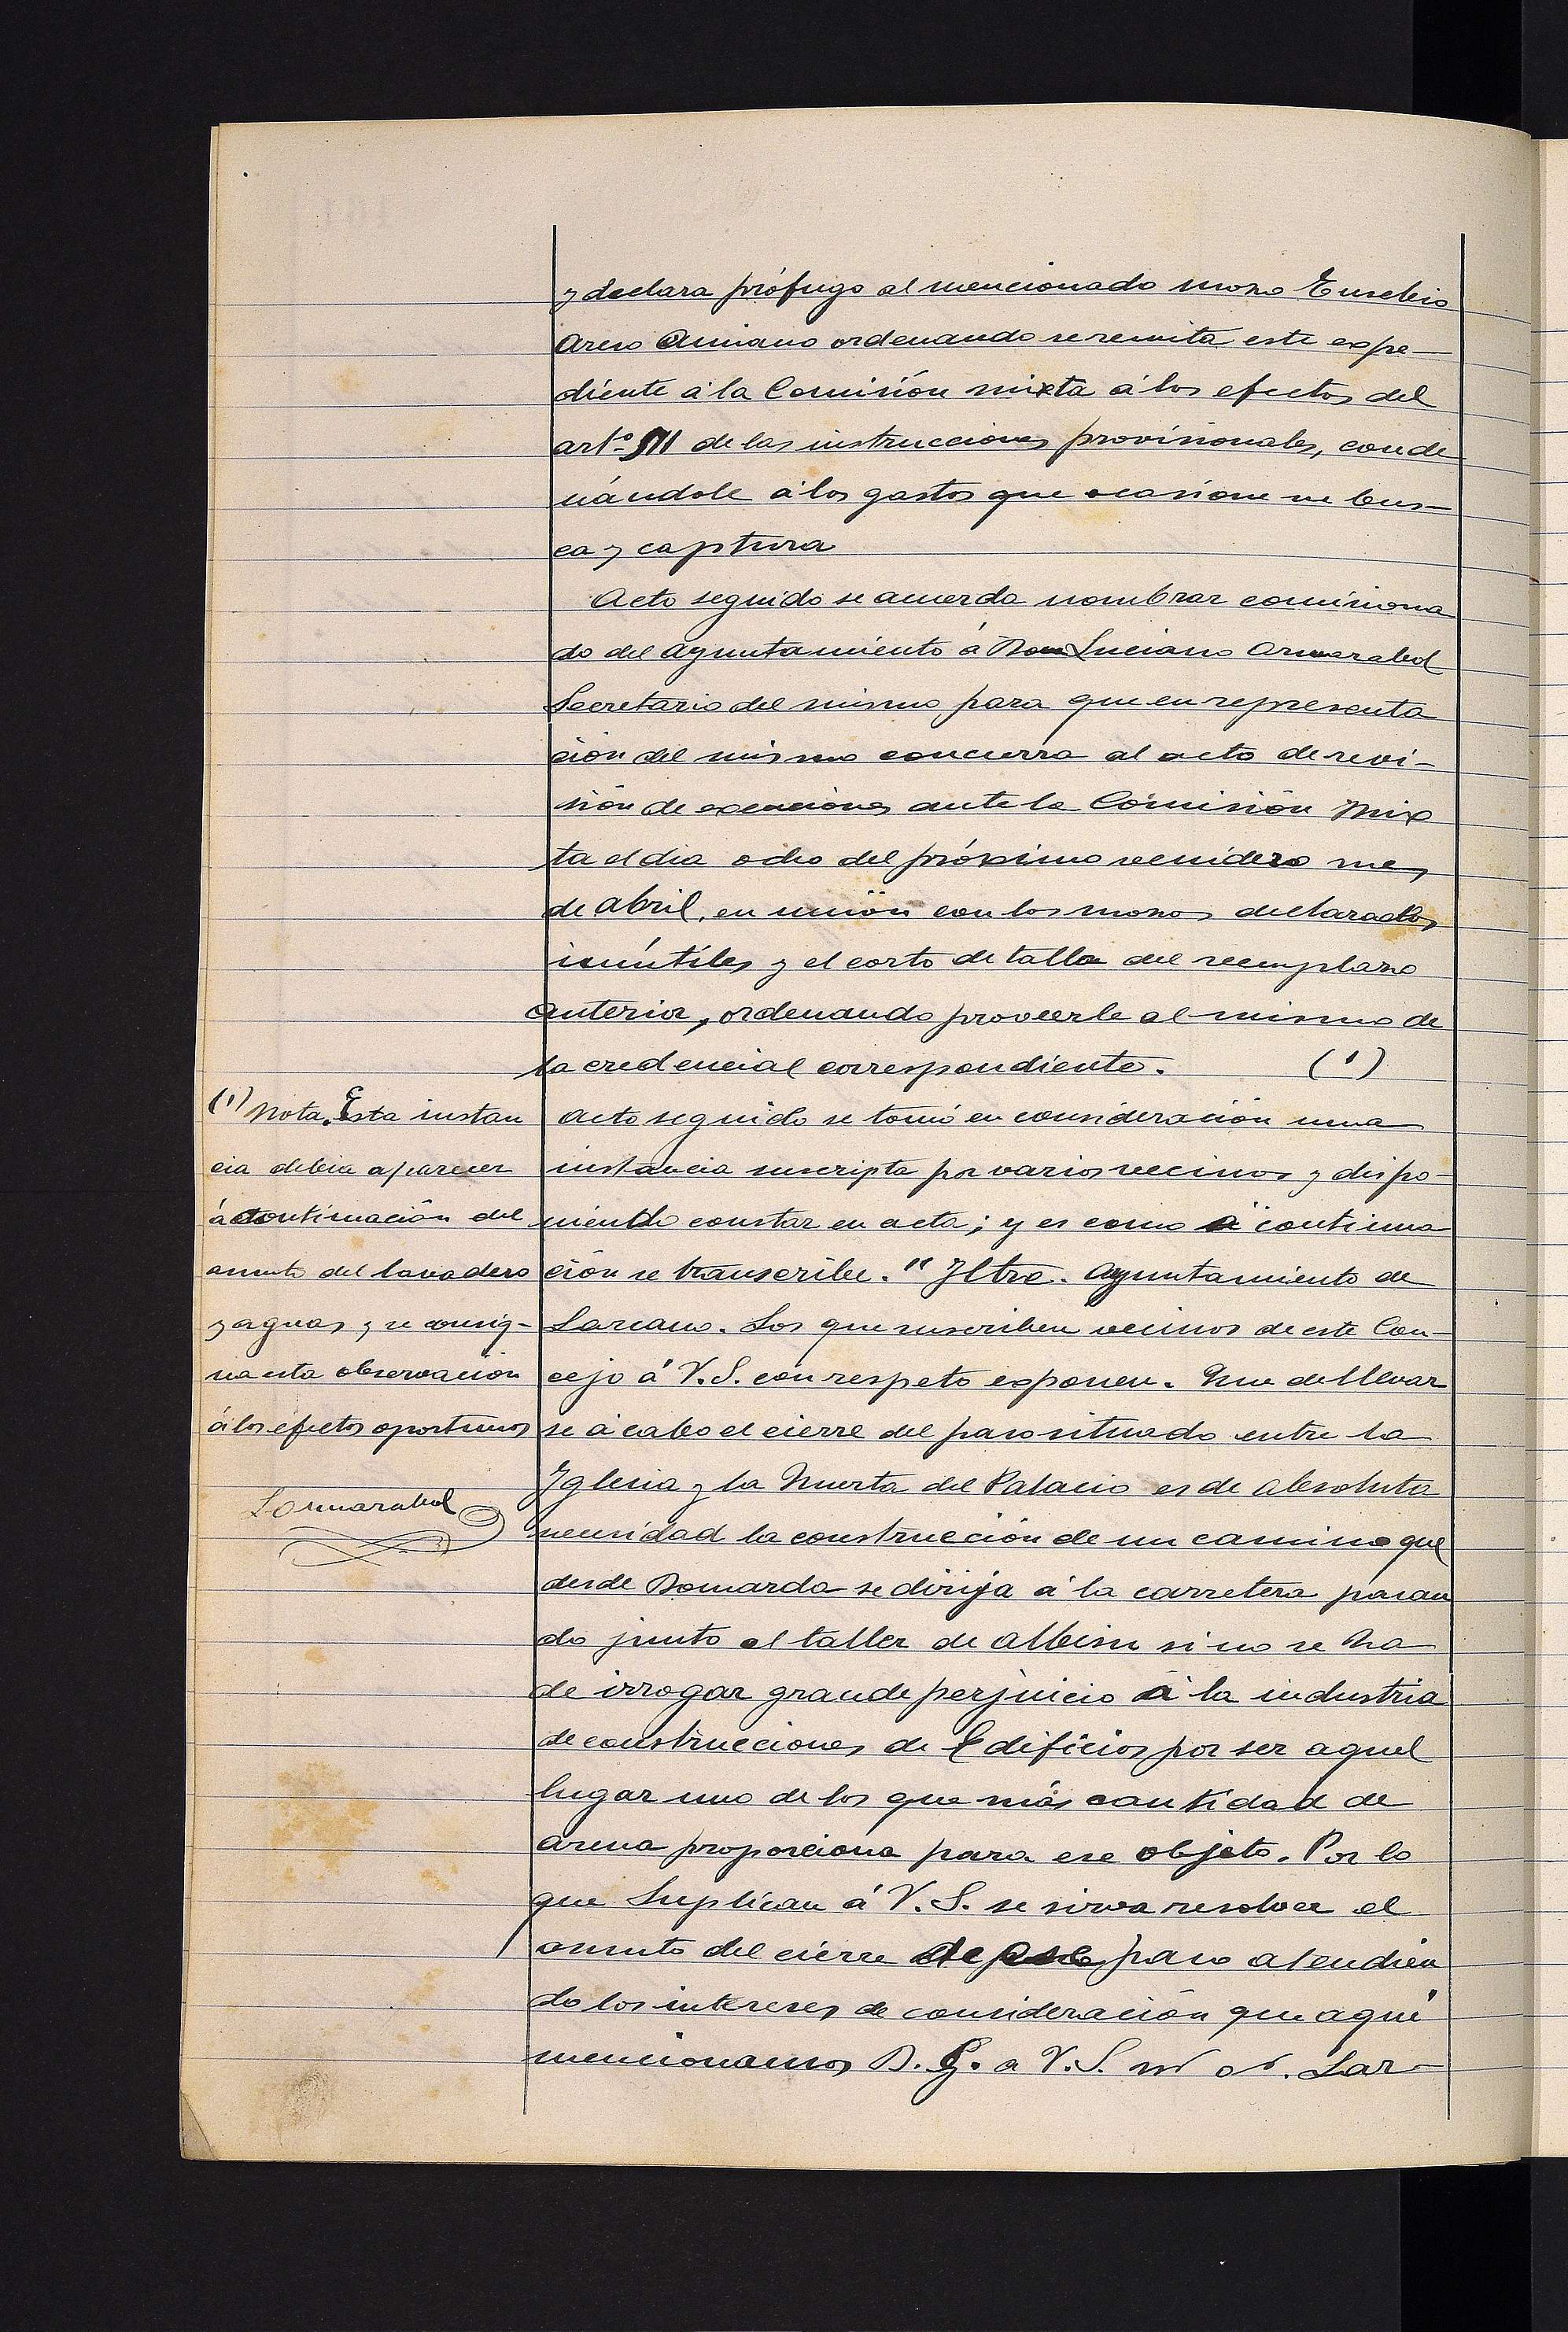 y declara prófugo al mencionado mozo Eusebio
Areso Amiano ordenando se remita este expe-
diente á la Comisión mixta á los efectos del
artº 111 de las instrucciones provisionales, conde
nándole á los gastos que ocasione su bus-
ca y captura
Acto seguido se acuerda nombrar comisiona
do del Ayuntamiento á Don Luciano Ormazabal
Secretario del mismo para que en representa
ción del mismo concurra al acto de revi-
sión de exenciones ante la Comisión Mix
ta el dia ocho del próximo venidero mes
de Abril, en unión con los mozos declarados
inútiles y el corto de talla del reemplazo
anterior, ordenando proveerle al mismo de
la credencial correspondiente. (1)
Acto seguido se tomó en consideración una
instancia suscripta por varios vecinos y dispo-
niendo constar en acta; y es como á continua
ción se transcribe. "Iltre. Ayuntamiento de
Lazcano. Los que suscriben vecinos de este Con-
cejo á V.S. con respeto exponen. Que de llevar
se á cabo el cierre del paso situado entre la
Iglesia y la Huerta del Palacio es de absoluta
necesidad la construcción de un camino que
desde Domarda se dirija á la carretera pasan
do junto al taller de Albisu si no se ha
de irrogar grande perjuicio á la industria
de construcciones de Edificios por ser aquel
lugar uno de los que más cantidad de
arena proporciona para ese objeto. Por lo
que Suplican á V.S. se sirva resolver el
asunto del cierre de paso atendien
do los intereses de consideración que aqui
mencionamos D. G. a V.S. Laz-
(1) Nota. Esta instan
cia debia aparecer
á continuación del
asunto del lavadero
y aguas, y se consig-
na esta observación
á los efectos oportunos
L Ormazabal